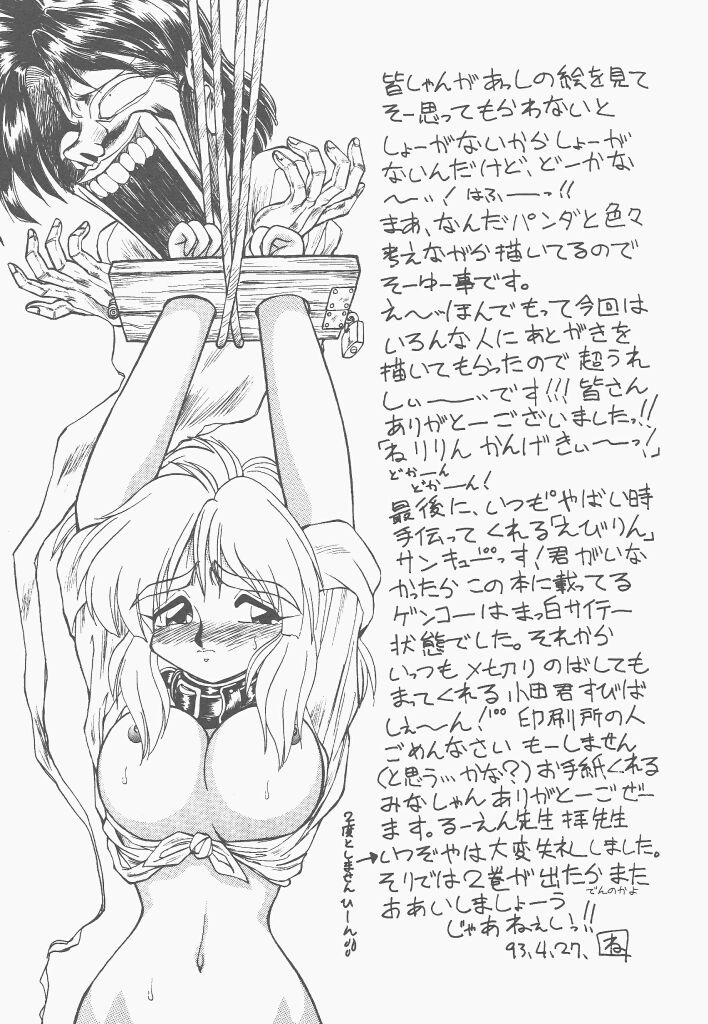 皆しゃんがあっしの絵を見て
そー思ってもらわないと
しょーがないからしょーが
ないんだけど、どーかな
〜ッ! はふぅーっ!!
まあ、なんだパンダと色々
考えながら描いてるので
そーゆー事です。
え〜ッほんでもって今回は
いろんな人にあとがきを
描いてもらったので超うれ
しぃーーッです!!! 皆さん
ありがとーございましたっ!!
「ねりりん かんげきぃーーっ!」
どかーん
どかーーん!
最後に、いつも"やばい時
手伝ってくれる「えびりん」
サンキューっす! 君がいな
かったらこの本に載ってる
ゲンコーはまっ白サイテー
状態でした。それから
いっつも〆切りのばしても
まってくれる小田君すびば
しぇ〜ん! 印刷所の人
ごめんなさいもーしません
(と思う…かな?)お手紙くれる
みなしゃんありがとーごぜー
ます。るーえん先生 拝先生
いつぞやは大変失礼しました。
2度としまさんひーん
そりでは2巻が出たらまた
でんのかよ
おあいしましょーう
じゃあねぇしぃっ!!
93.4.27. ね